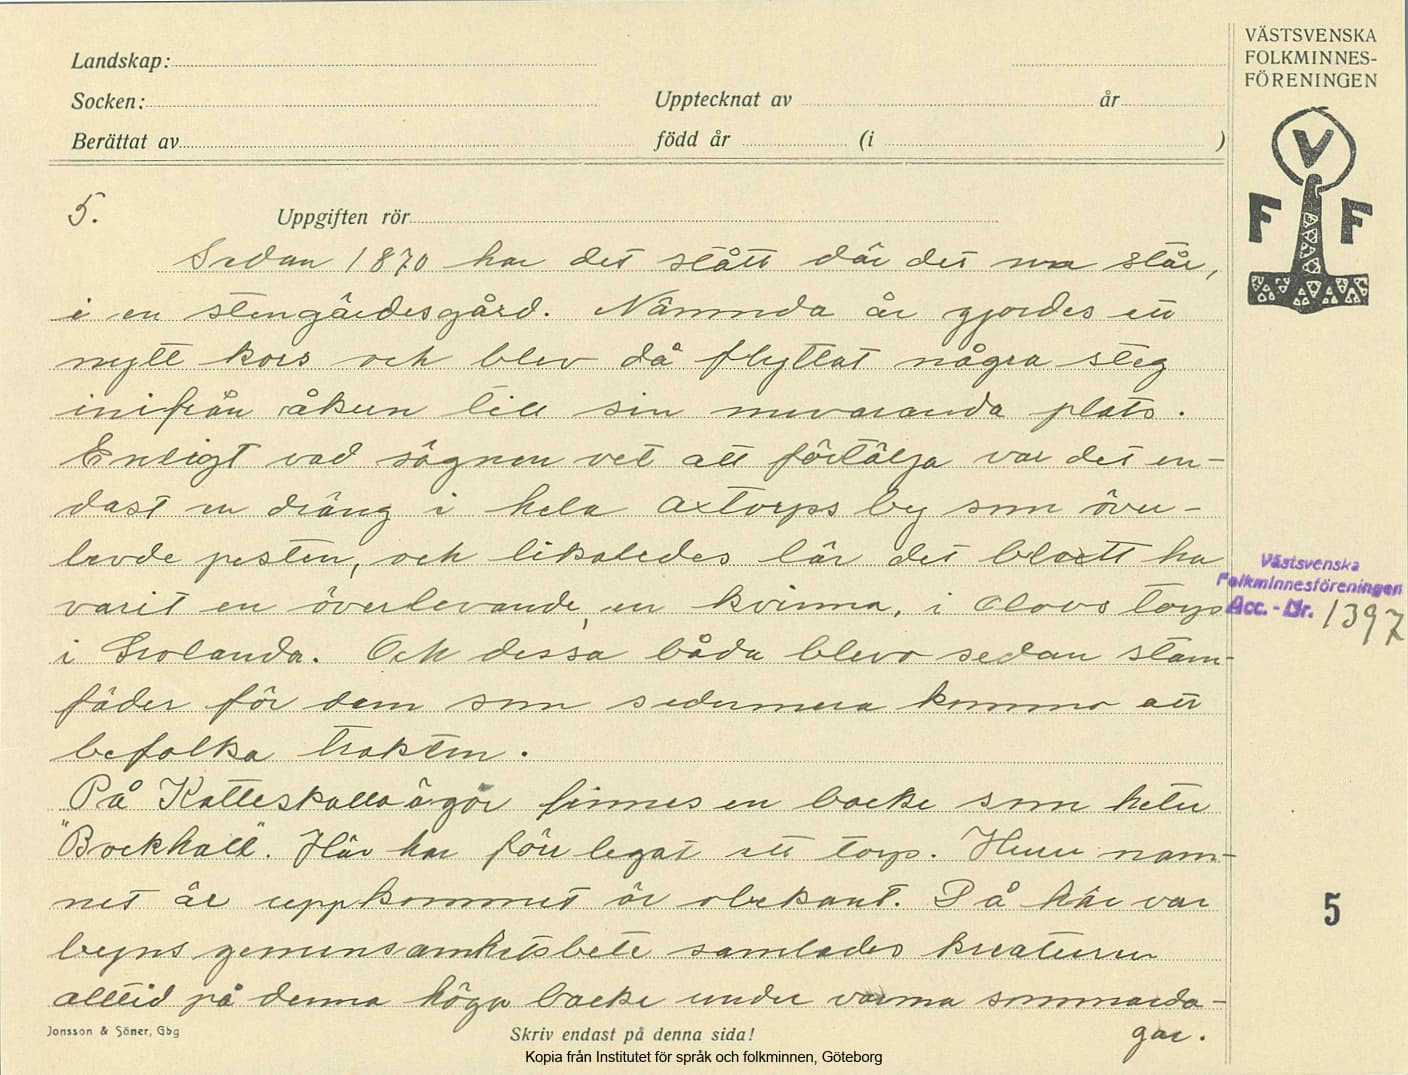 Landskap:
Socken: Upptecknat av år
Berättat av född år (i )
VÄSTSVENSKA
FOLKMINNES-
FÖRENINGEN
V
F F
5. Uppgiften rör
Sedan 1870 har det stått där det nu står,
i en stengärdesgård. Nämnda år gjordes ett
nytt kors och blev då flyttat några steg
inifrån åkern till sin nuvarande plats.
Enligt vad sägnen vet att förtälja var det en-
dast en dräng i hela Axtorps by som över-
levde pesten, och likaledes lär det blott ha
varit en överlevande, en kvinna, i Olovs torp
i Grolanda. Och dessa båda blevo sedan stam-
fäder för dem som sedermera kommo att
befolka trakten.
På Katteskalla ägor finnes en backe som heter
"Bockhall". Här har förr legat ett torp. Huru nam-
net är uppkommet är obekant. På här var
byns gemensamhetsbete samlades kreaturen
alltid på denna höga backe under varma sommarda-
gar.
Västsvenska
Folkminnesföreningen
Acc. - Nr. 1397
5
Jonsson & Söner, Gbg
Skriv endast på denna sida!
Kopia från Institutet för språk och folkminnen, Göteborg